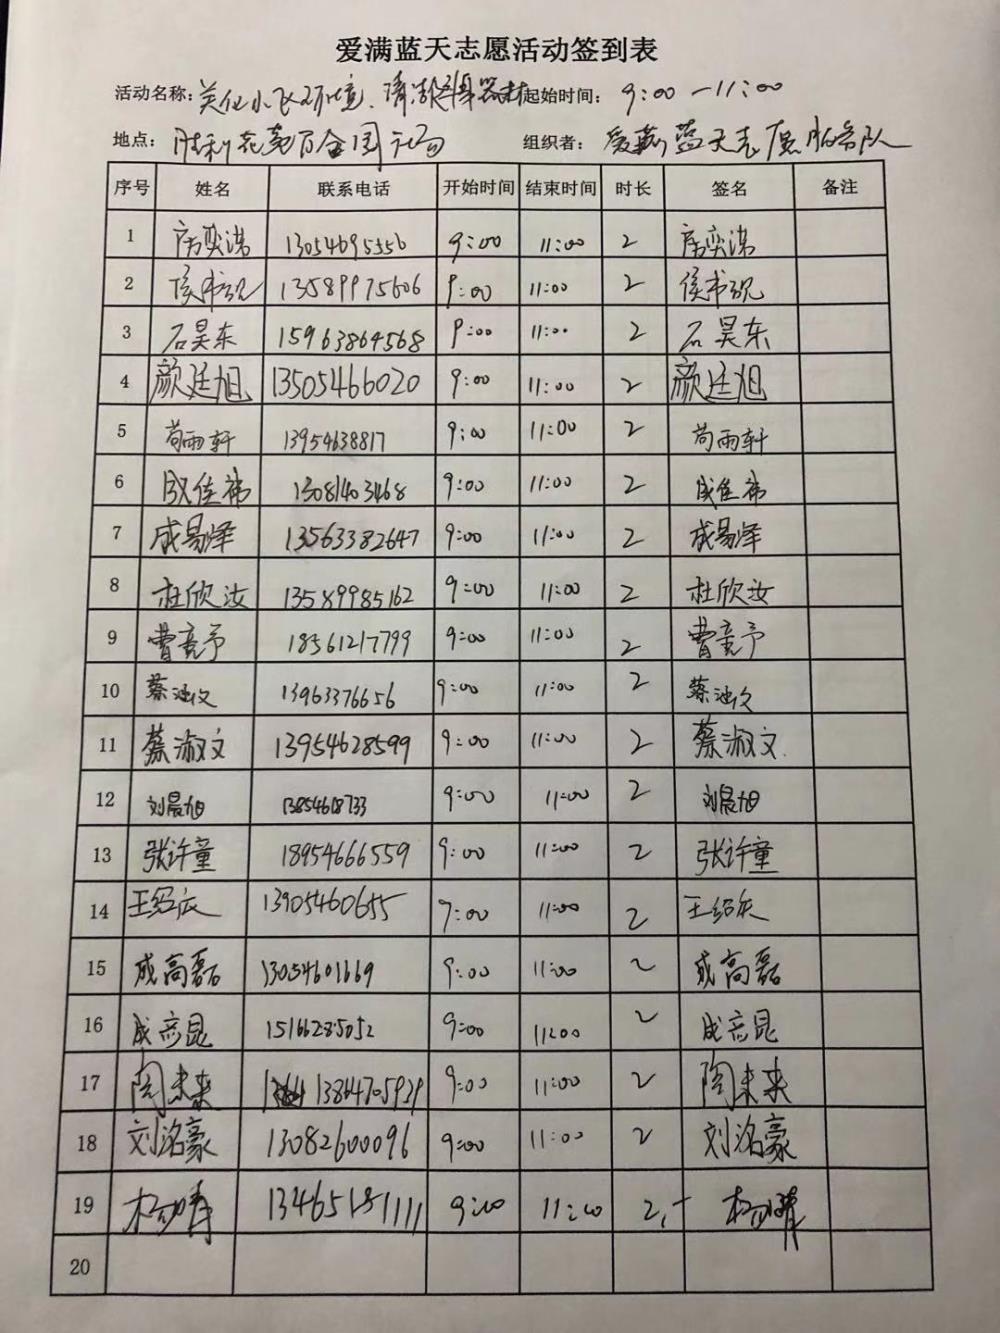 爱满蓝天志愿活动签到表
活动名称：美化小飞环境、清洁器材 起始时间：9:00—11:00
地点：胜利花苑百合园广场 组织者：爱满蓝天志愿服务队
序号 姓名 联系电话 开始时间 结束时间 时长 签名 备注
1 13054695556 9:00 11:00 2
2 13589975606 9:00 11:00 2
3 石昊东 15963864568 9:00 11:00 2 石昊东
4 颜廷旭 13505466020 9:00 11:00 2 颜廷旭
5 苟雨轩 13954638817 9:00 11:00 2 苟雨轩
6 成佳祎 13081403468 9:00 11:00 2 成佳祎
7 成易泽 13563382647 9:00 11:00 2 成易泽
8 杜欣汝 13589985162 9:00 11:00 2 杜欣汝
9 曹竞予 18561217799 9:00 11:00 2 曹竞予
10 13963376656 9:00 11:00 2
11 蔡淑文 13954628599 9:00 11:00 2 蔡淑文
12 刘晨旭 13854618733 9:00 11:00 2 刘晨旭
13 张许童 18954666559 9:00 11:00 2 张许童
14 王绍庆 13905460655 9:00 11:00 2 王绍庆
15 成高磊 13054601669 9:00 11:00 2 成高磊
16 成高昆 15166285052 9:00 11:00 2 成高昆
17 陶未来 13864705939 9:00 11:00 2 陶未来
18 刘洺豪 13082600096 9:00 11:00 2 刘洺豪
19 杨晴 13465181111 9:00 11:00 2 杨晴
20